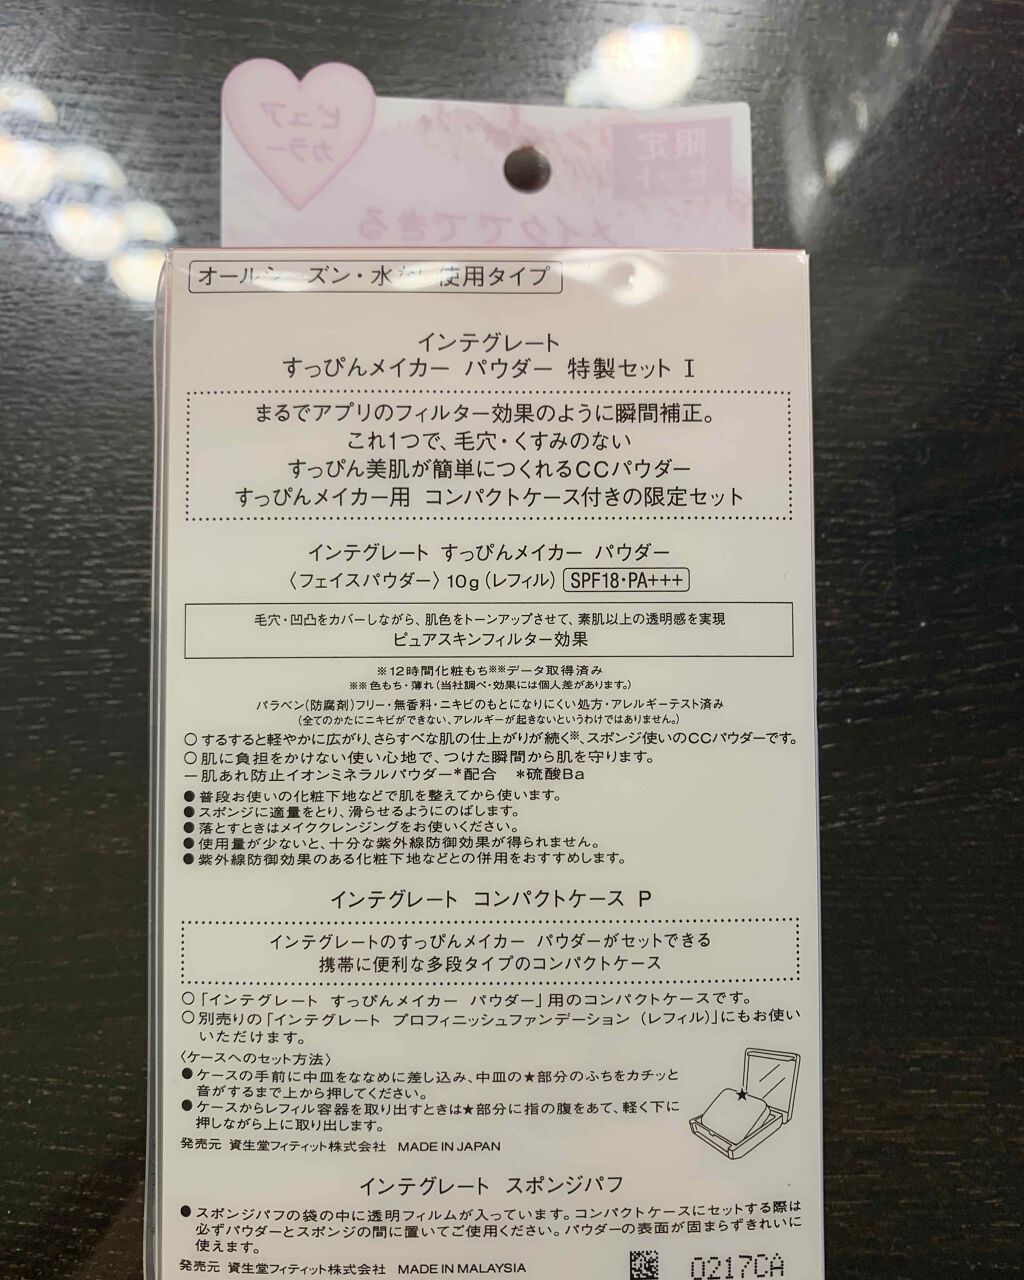 ピュア
カラー
限定
セット
メイクでできる
オールシーズン・水なし使用タイプ
インテグレート
すっぴんメイカー パウダー 特製セット I
まるでアプリのフィルター効果のように瞬間補正。
これ1つで、毛穴・くすみのない
すっぴん美肌が簡単につくれるCCパウダー
すっぴんメイカー用 コンパクトケース付きの限定セット
インテグレート すっぴんメイカー パウダー
〈フェイスパウダー〉10g（レフィル） SPF18・PA+++
毛穴・凹凸をカバーしながら、肌色をトーンアップさせて、素肌以上の透明感を実現
ピュアスキンフィルター効果
※12時間化粧もち※※データ取得済み
※※色もち・薄れ（当社調べ・効果には個人差があります。）
パラベン（防腐剤）フリー・無香料・ニキビのもとになりにくい処方・アレルギーテスト済み
（全てのかたにニキビができない、アレルギーが起きないというわけではありません。）
○するすると軽やかに広がり、さらすべな肌の仕上がりが続く※、スポンジ使いのCCパウダーです。
○肌に負担をかけない使い心地で、つけた瞬間から肌を守ります。
ー肌あれ防止イオンミネラルパウダー*配合 *硫酸Ba
●普段お使いの化粧下地などで肌を整えてから使います。
●スポンジに適量をとり、滑らせるようにのばします。
●落とすときはメイククレンジングをお使いください。
●使用量が少ないと、十分な紫外線防御効果が得られません。
●紫外線防御効果のある化粧下地などとの併用をおすすめします。
インテグレート コンパクトケース P
インテグレートのすっぴんメイカー パウダーがセットできる
携帯に便利な多段タイプのコンパクトケース
○「インテグレート すっぴんメイカー パウダー」用のコンパクトケースです。
○別売りの「インテグレート プロフィニッシュファンデーション（レフィル）」にもお使い
いただけます。
〈ケースへのセット方法〉
●ケースの手前に中皿をななめに差し込み、中皿の★部分のふちをカチッと
音がするまで上から押してください。
●ケースからレフィル容器を取り出すときは★部分に指の腹をあて、軽く下に
押しながら上に取り出します。
発売元 資生堂フィティット株式会社 MADE IN JAPAN
インテグレート スポンジパフ
●スポンジパフの袋の中に透明フィルムが入っています。コンパクトケースにセットする際は
必ずパウダーとスポンジの間に置いてご使用ください。パウダーの表面が固まらずきれいに
使えます。
発売元 資生堂フィティット株式会社 MADE IN MALAYSIA
0217CA